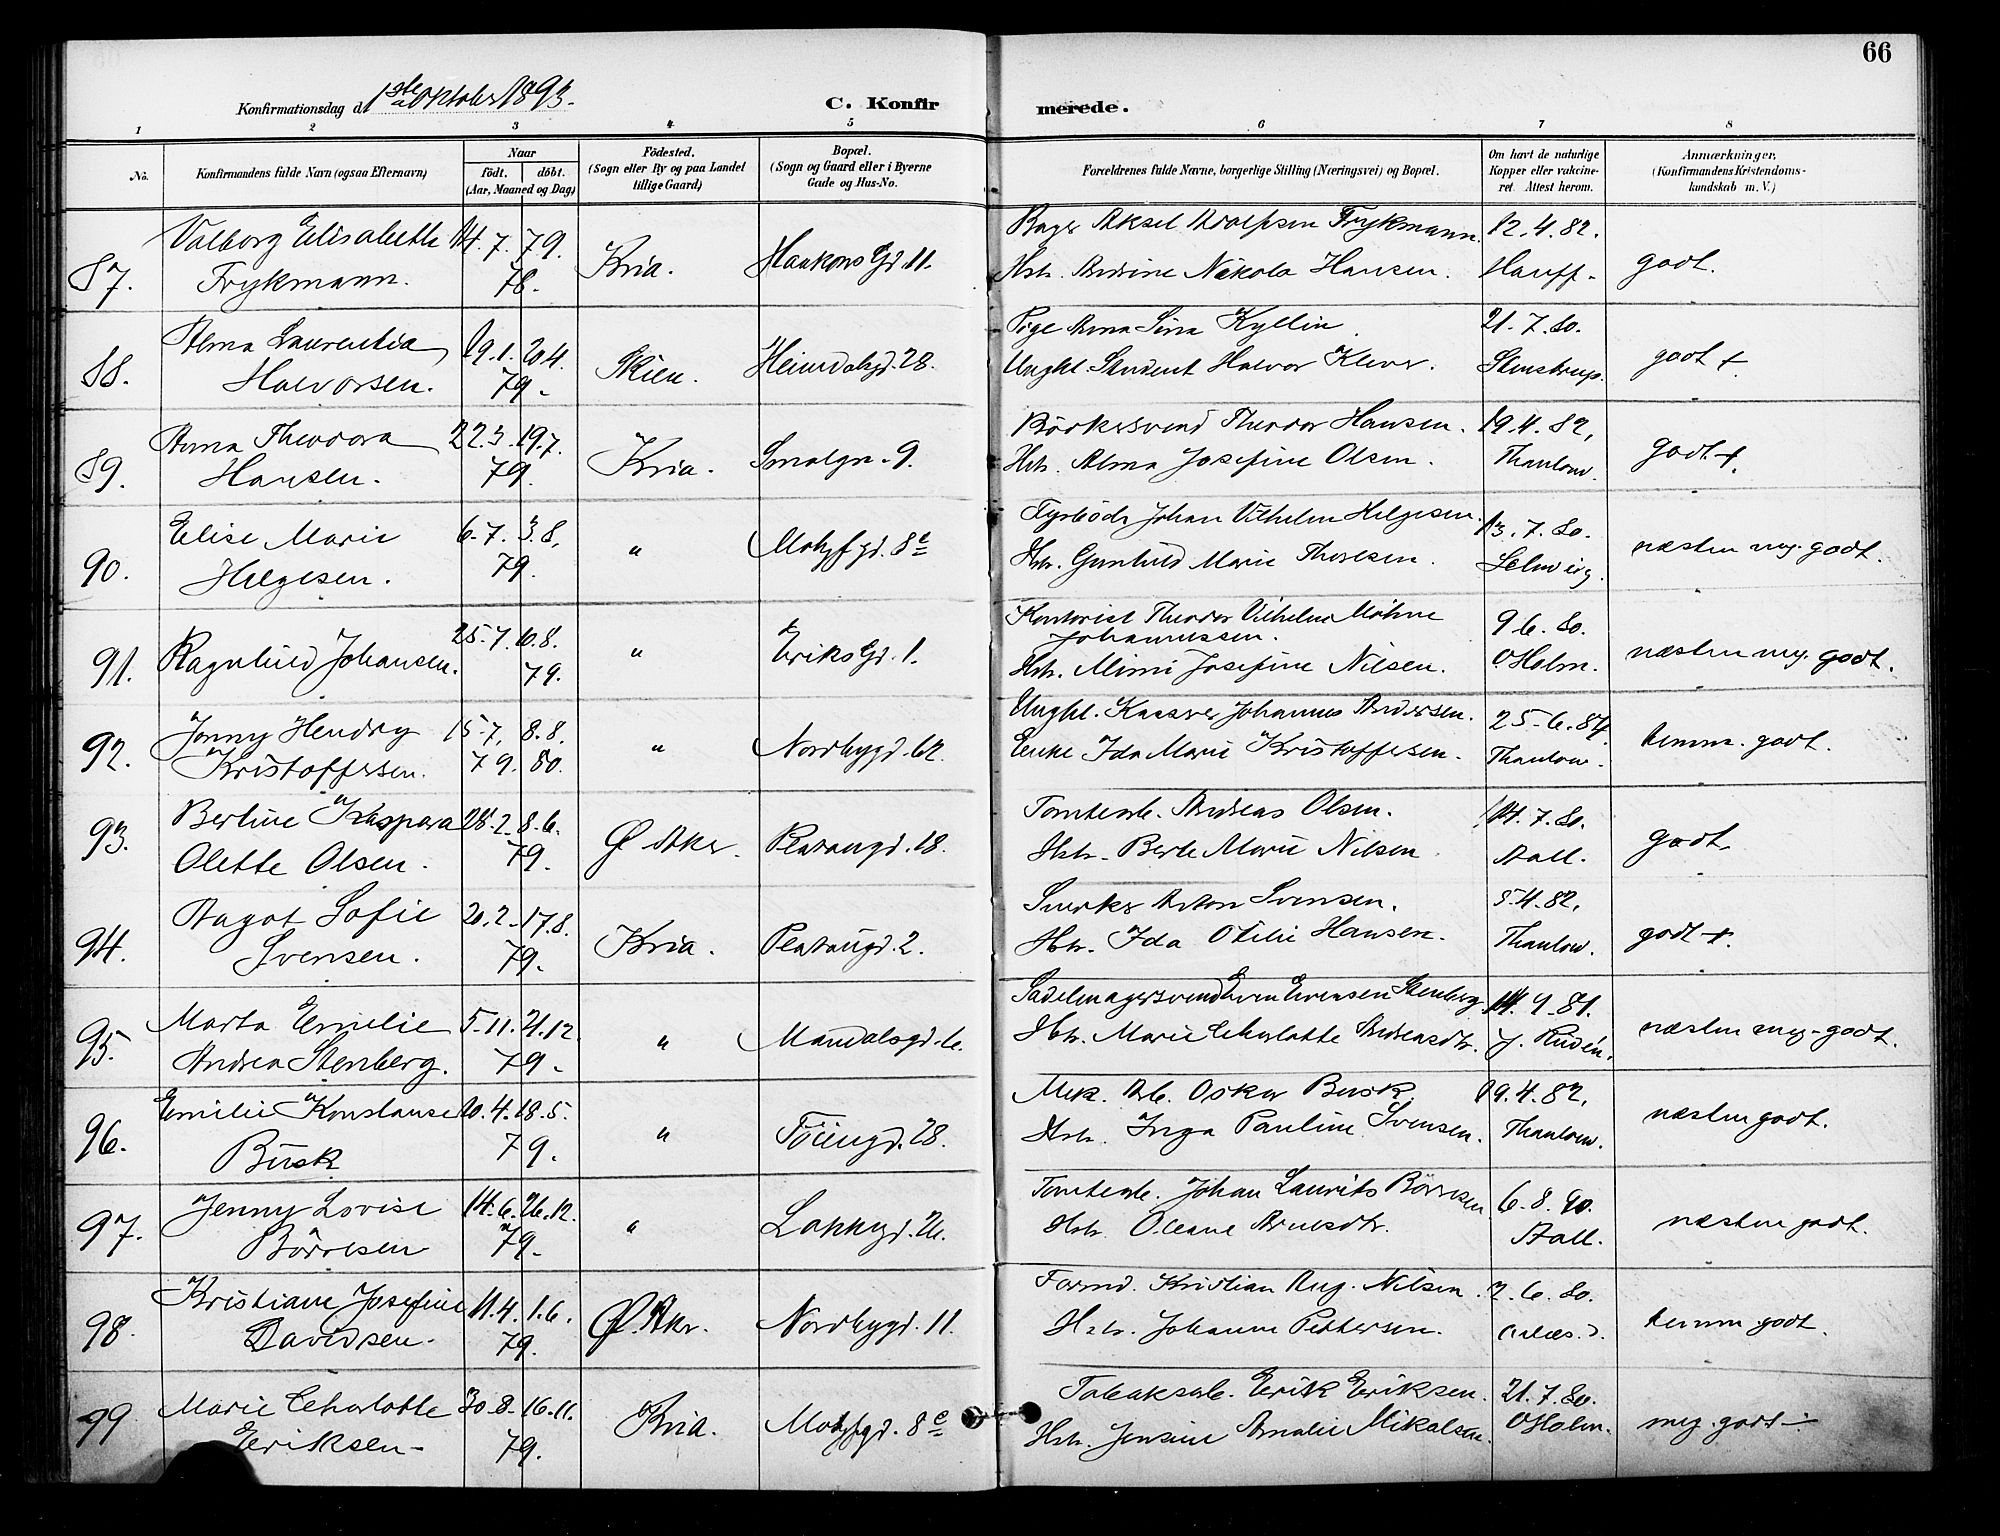 66
Konfirmationsdag d. 1ste Oktober 1893.
C. Konfirmerede.
1 2 3 4 5 6 7 8
No. Konfirmandens fulde Navn (ogsaa Efternavn) Naar Födested. Bopæl. Forældrenes fulde Navne, borgerlige Stilling (Næringsvei) og Bopæl. Om havt de naturlige Anmærkninger.
födt. döbt. (Sogn eller By og paa Landet (Sogn og Gaard eller i Byerne Kopper eller vakcine- (Konfirmandens Kristendoms-
(Aar, Maaned og Dag) tillige Gaard) Gade og Hus-No. ret. Attest herom. kundskab m. V.)
Valborg Elisabeth 14.7. 79. Bager Aksel Adolfsen Frykmann. 12.4.82.
87. Frykmann. 78. Kria. Haakons Gd. 11. Hstr. Andrine Nikola Hansen. Hauff. godt.
Alma Laurentia 19.1. 20.4. Pige Anna Sina Kyllin. 21.7.80.
88. Halvorsen. 79. Skien. Heimdalsgd. 28. Unghl. Student Halvor Klever. Stenstrup. godt +.
Anna Theodora 22.3. 19.7. Bödkersvend Theodor Hansen. 19.4.82,
89. Hansen. 79. Kria. Smalgn. 9. Hstr. Alma Josefine Olsen. Thaulow. godt +.
Elise Marie 6.7. 3.8. Fyrböder Johan Vilhelm Helgesen. 13.7.80.
90. Helgesen. 79. " Motzfgd. 8c Hstr. Gunhild Marie Thoresen. Selmer. næsten meg. godt.
25.7. 10.8. Kontorist Theodor Vilhelm Möhne 9.6.80.
91. Ragnhild Johansen. 79. " Eriks Gd. 1. Johannessen.
Hstr. Mimi Josefine Nilsen. O Holm. næsten meg. godt.
Jonny Hendry 15.7. 8.8. Unghl. Kasserer Johannes Andersen. 25.6.84.
92. Kristoffersen. 79. 80. " Nordbygd. 62. Enke Ida Marie Kristoffersen. Thaulow. temm. godt.
Bertine Kaspara 28.2. 8.6. Tomtearb. Andreas Olsen. 14.7.80.
93. Olette Olsen. 79. Ø Aker. Platougd. 18. Hstr. Berte Marie Nilsen Aall. godt.
Dagot Sofie 20.2. 17.8. Snerker Anton Svensen. 5.4.82.
94. Svensen. 79. Kria. Platougd. 2. Hstr. Ida Otilie Hansen. Thaulow. godt +.
Marta Emilie 5.11. 21.12. Sadelmagersvend Even Evensen Stenberg 14.9.81.
95. Andrea Stenberg. 79. " Mandalsgd. 6. Hstr. Marie Charlotte Andreasdtr. J. Rudén. næsten meg. godt.
Emilie Konstanse 10.4. 18.5. Mek. Arb. Oskar Busk. 19.4.82.
96. Busk 79. " Töiengd. 28. Hstr. Inga Pauline Svensen. Thaulow. næsten godt.
Jenny Lovise 14.6. 26.12. Tomtearb. Johan Laurits Börresen 6.8.90.
97. Börresen 79. " Lakkegd. 26. Hstr. Oleane Arnesdtr. Aall. næsten godt.
Kristiane Josefine 11.4. 1.6. Formd. Kristian Aug. Nilsen. 2.6.80.
98. Davidsen. 79. Ø. Aker. Nordbygd. 11. Hstr. Johanne Pettersen. temm. godt.
Marie Charlotte 30.8. 16.11. Tobaksarb. Erik Eriksen. 21.7.80.
99 Eriksen. 79. Kria. Motzfgd. 8c Hstr. Jensine Amalie Mikalsen. O Holm. meg. godt ÷